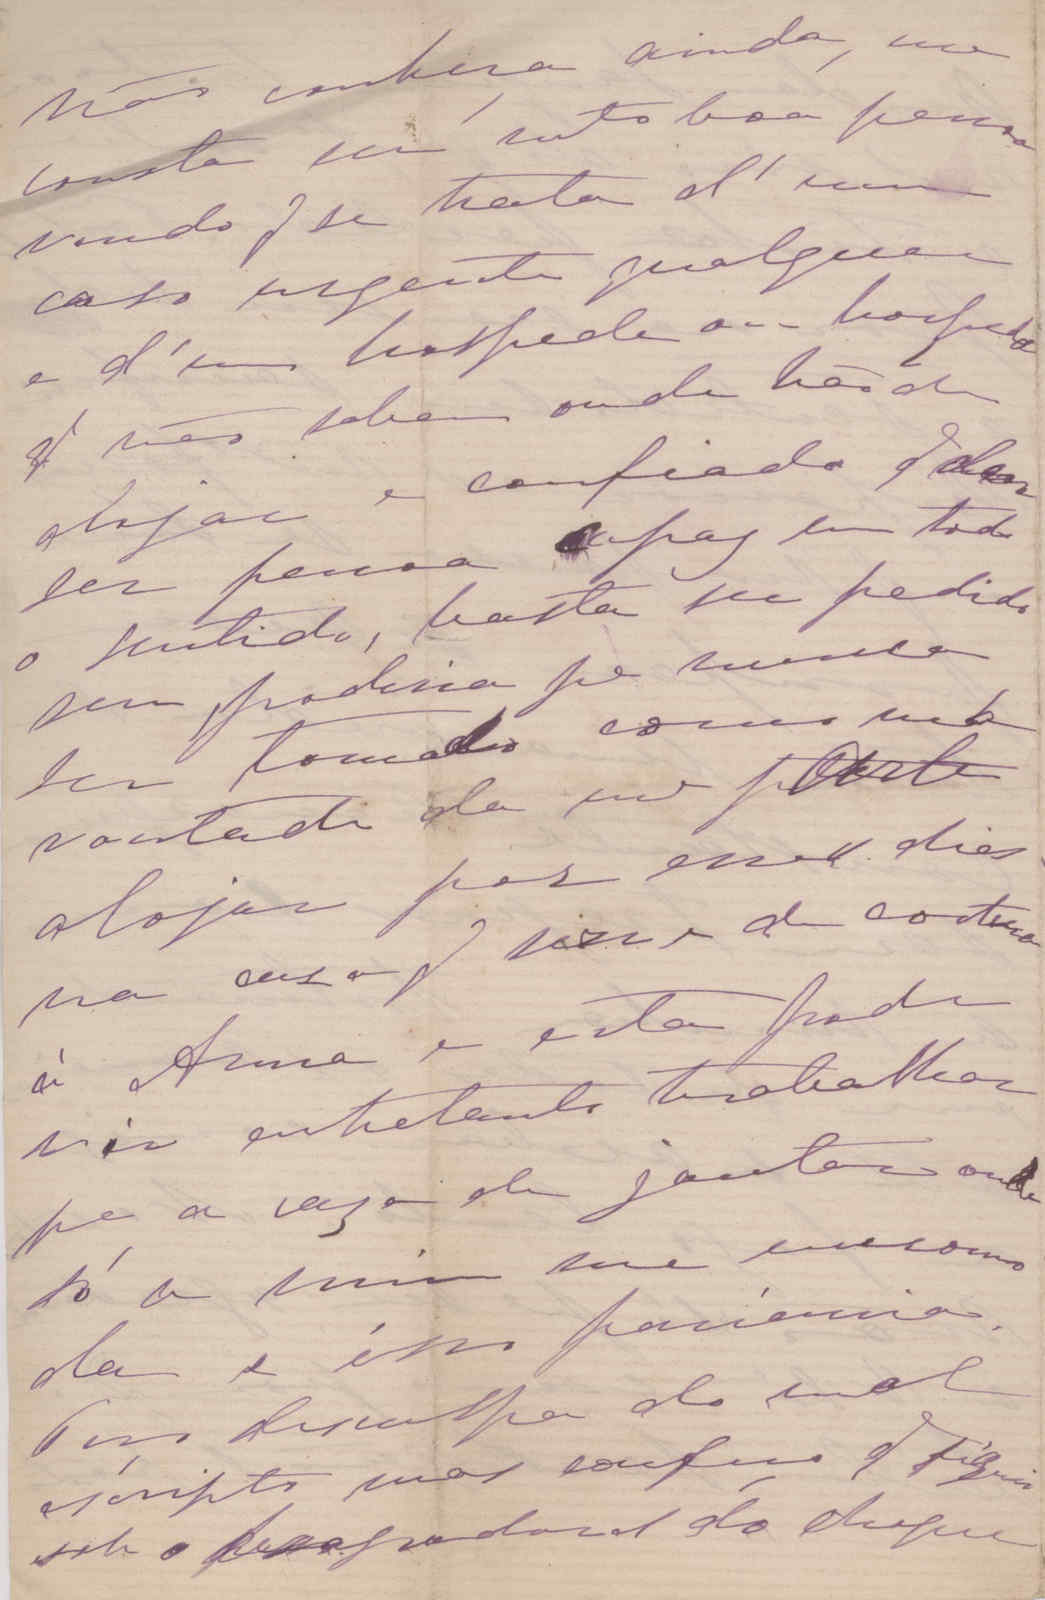 não conheça ainda, me
consta ser mto boa pessoa
vendo q se trata d'um
caso urgente qualquer
e d'um hospede ou hospeda
q não sabem onde hão de
alojar e confiada q
ser pessoa capaz em todo
o sentido, basta seu pedido
sem poderia pa nunca
ser tomado como má
vontade da me parte
alojar por esses dias
na casa q serve de costura
á Anna e esta pode
vir entretanto trabalhar
pa a caza de jantar onde
só a mim me encomo
da e isso paciencia.
Peço desculpa do mal
escripto mas confesso q fiquei
sob o desagradavel do choque